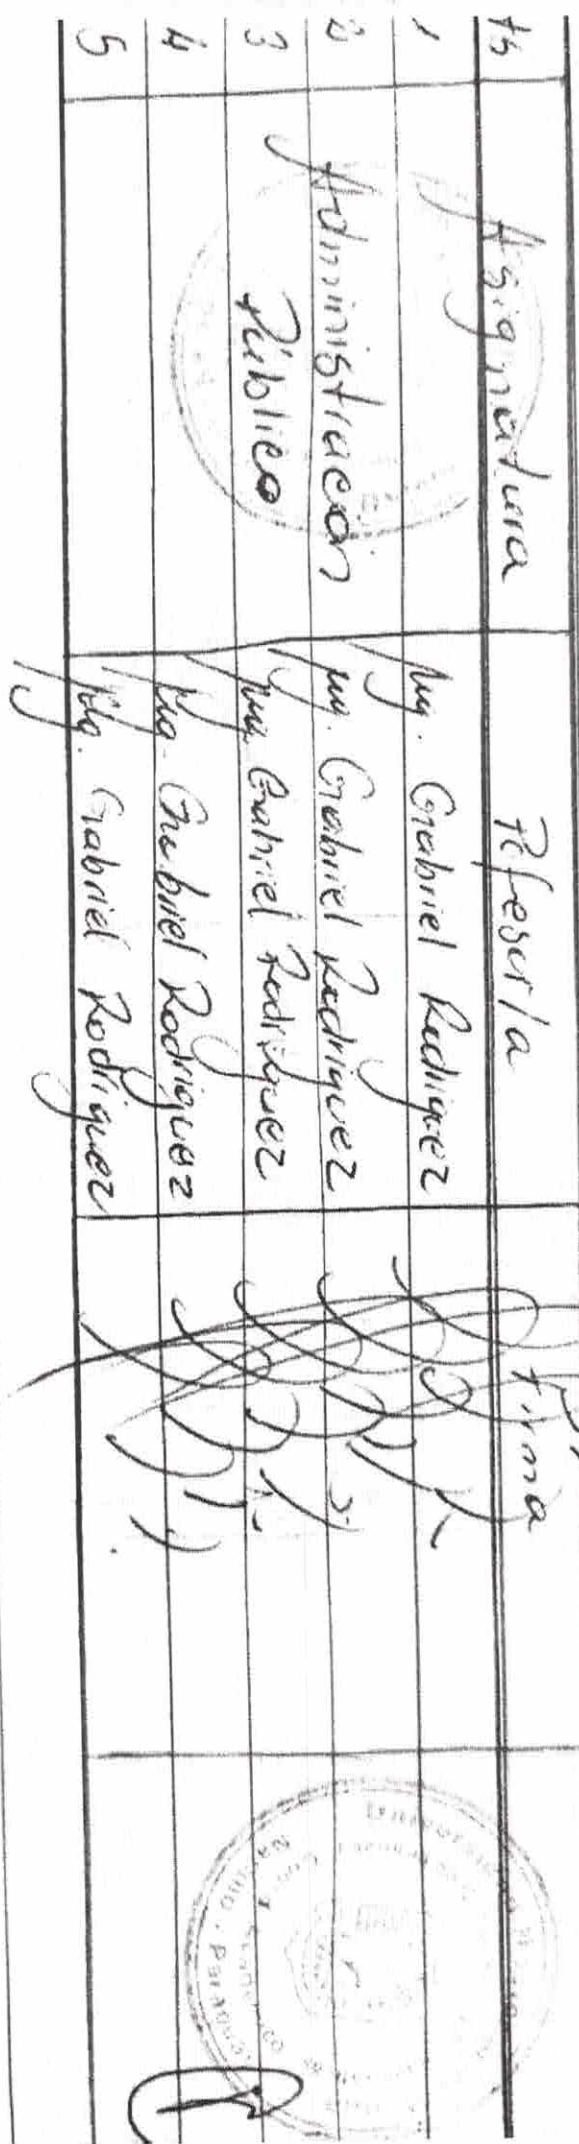 Hs Asignatura Pofesor/a Firma
1 Mg. Gabriel Rodriguez
2 Administración Mg. Gabriel Rodriguez
3 Público Mg. Gabriel Rodriguez
4 Mg. Gabriel Rodriguez
5 Mg. Gabriel Rodriguez